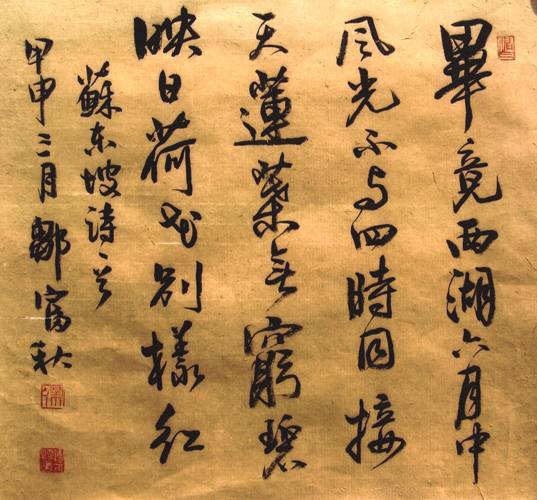 畢竟西湖六月中
風光不与四時同接
天蓮葉無窮碧
映日荷花別樣紅
蘇東坡詩
甲申三月鄒富秋